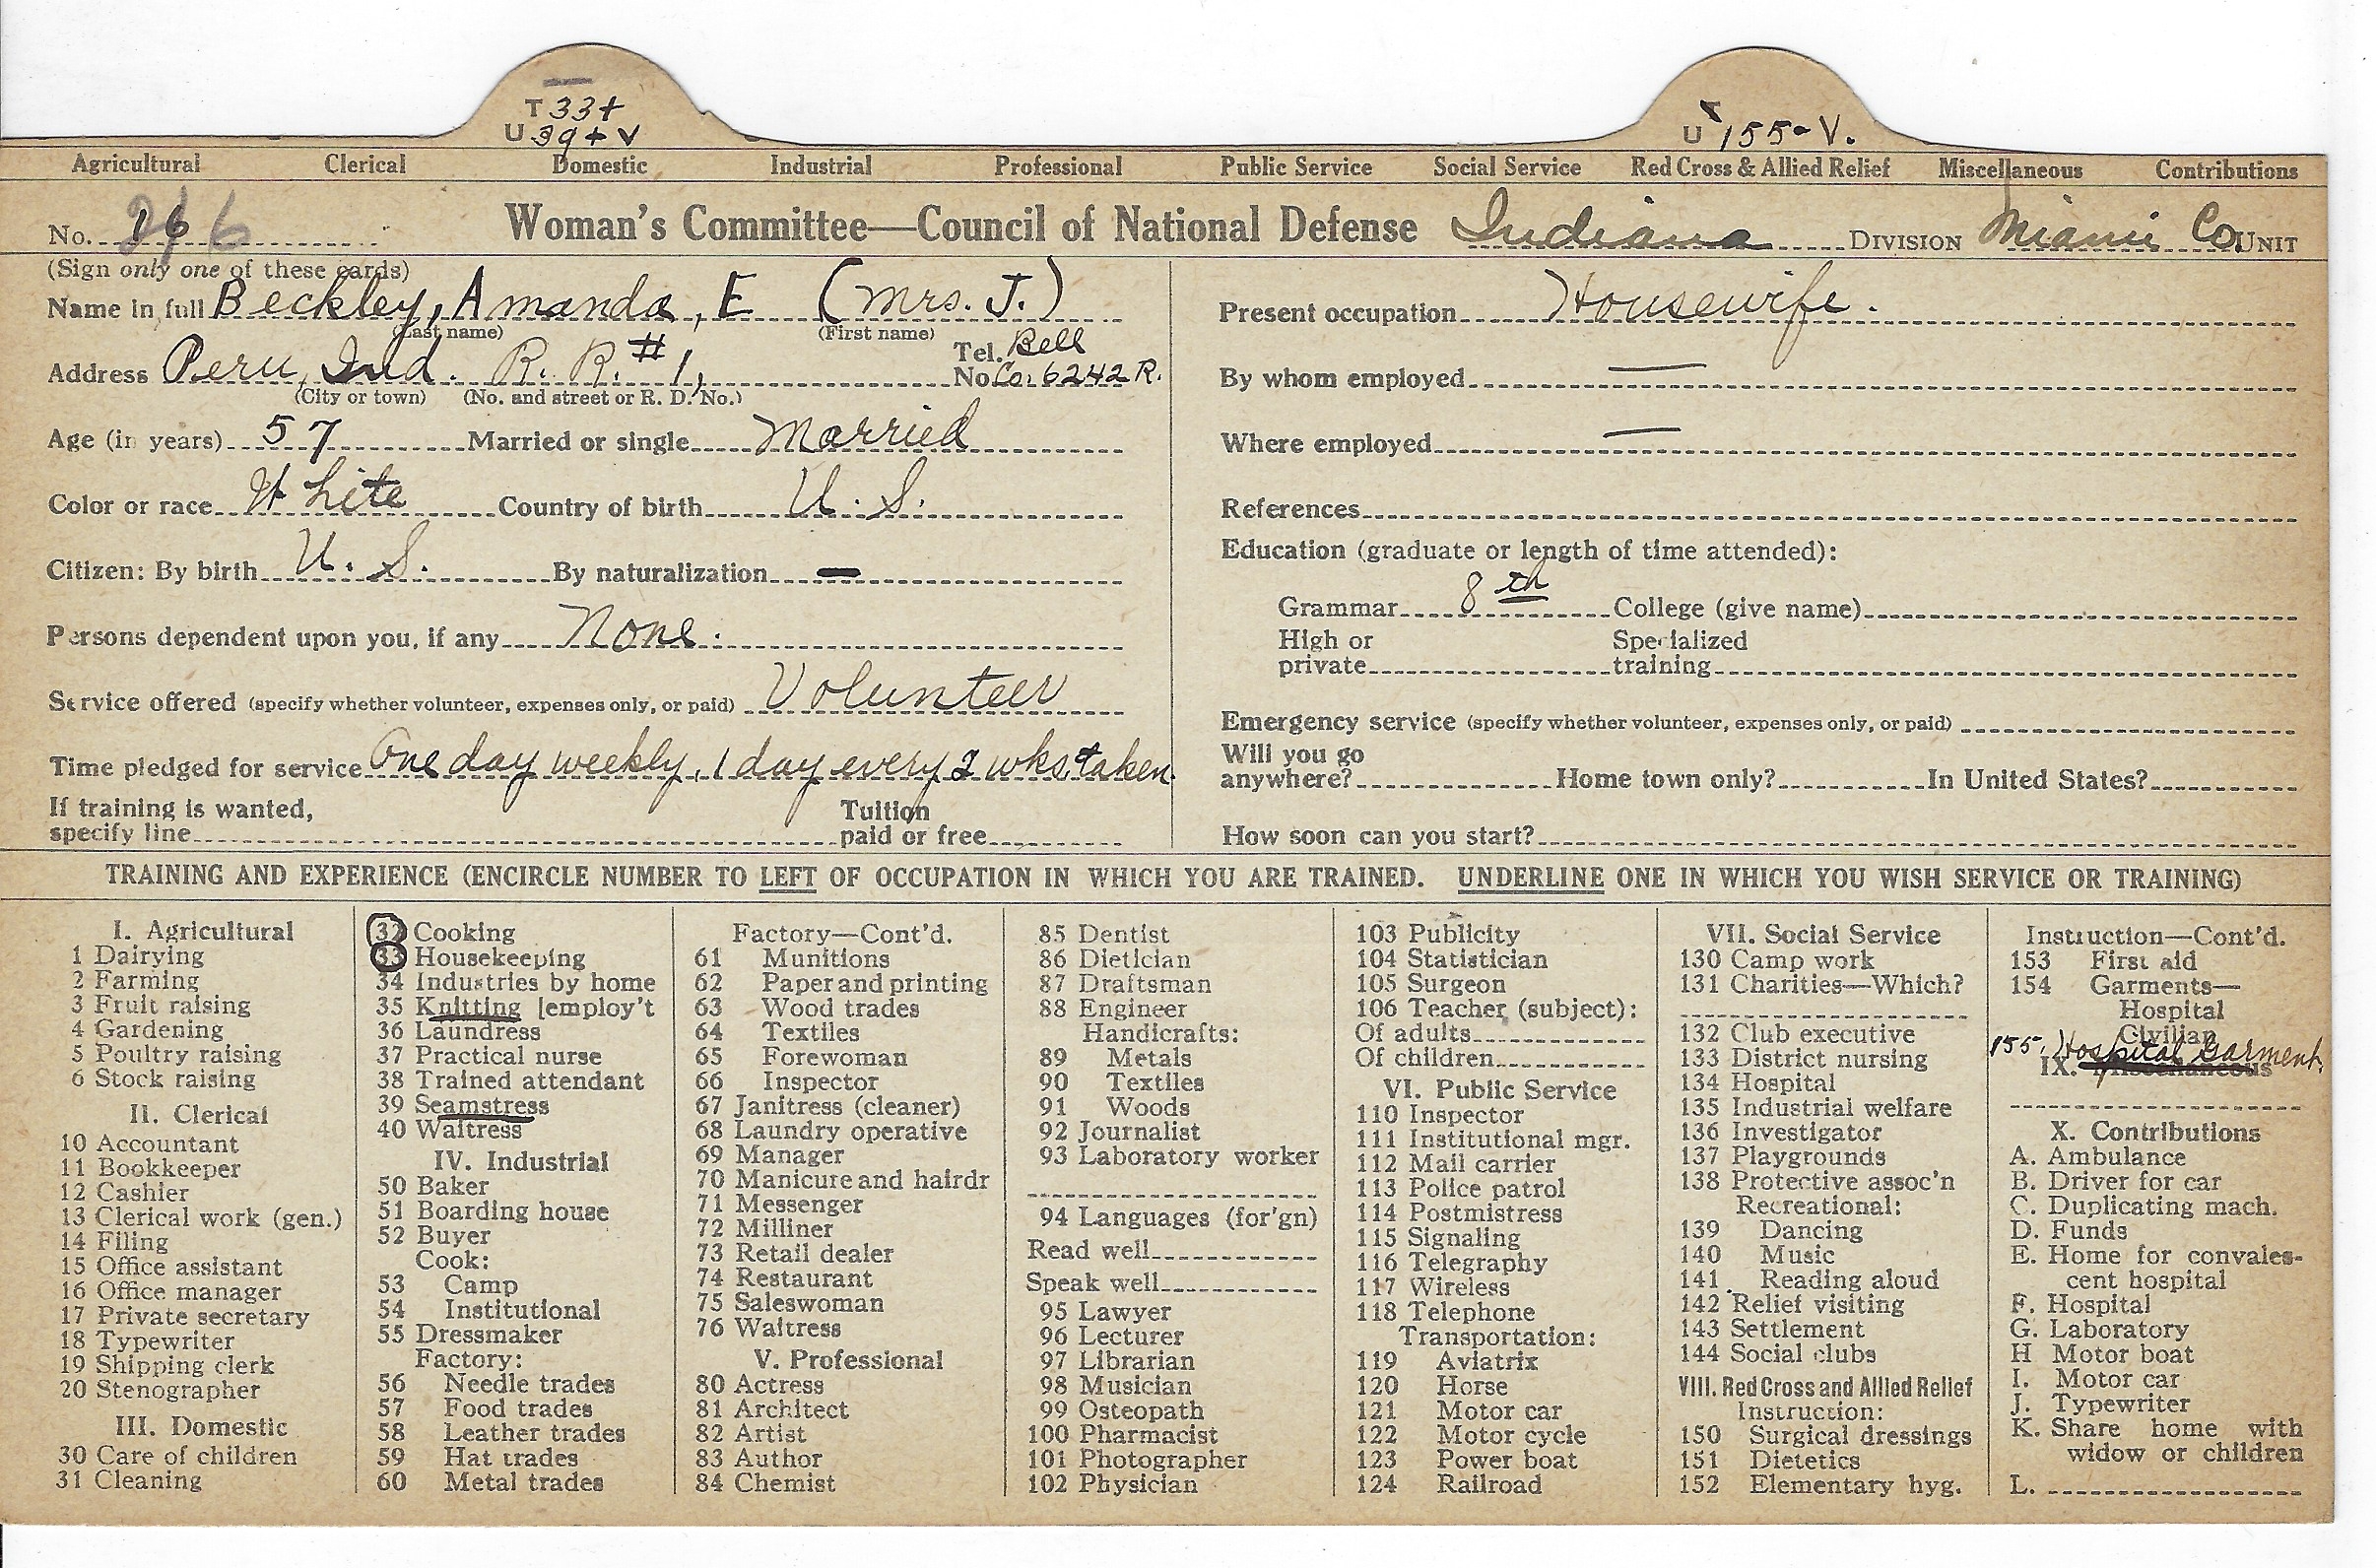 T 33+
U 39+ V
U 155-V.
Agricultural Clerical Domestic Industrial Professional Public Service Social Service Red Cross & Allied Relief Miscellaneous Contributions
No. 16 Woman's Committee—Council of National Defense Indiana DIVISION Miami Co. UNIT
(Sign only one of these cards)
Name in full Beckley, Amanda, E (Mrs. J.)
(Last name) (First name)
Address Peru, Ind. R. R. #1, Tel. No. Bell Co. 6242 R.
(City or town) (No. and street or R. D. No.)
Age (in years) 57 Married or single Married
Color or race White Country of birth U. S.
Citizen: By birth U. S. By naturalization —
Persons dependent upon you, if any None.
Service offered (specify whether volunteer, expenses only, or paid) Volunteer
Time pledged for service One day weekly, 1 day every 2 wks taken.
If training is wanted, specify line Tuition paid or free
Present occupation Housewife.
By whom employed —
Where employed —
References
Education (graduate or length of time attended):
Grammar 8th College (give name)
High or private Specialized training
Emergency service (specify whether volunteer, expenses only, or paid)
Will you go anywhere? Home town only? In United States?
How soon can you start?
TRAINING AND EXPERIENCE (ENCIRCLE NUMBER TO LEFT OF OCCUPATION IN WHICH YOU ARE TRAINED. UNDERLINE ONE IN WHICH YOU WISH SERVICE OR TRAINING)
I. Agricultural
1 Dairying
2 Farming
3 Fruit raising
4 Gardening
5 Poultry raising
6 Stock raising
II. Clerical
10 Accountant
11 Bookkeeper
12 Cashier
13 Clerical work (gen.)
14 Filing
15 Office assistant
16 Office manager
17 Private secretary
18 Typewriter
19 Shipping clerk
20 Stenographer
III. Domestic
30 Care of children
31 Cleaning
32 Cooking
33 Housekeeping
34 Industries by home
35 Knitting [employ't
36 Laundress
37 Practical nurse
38 Trained attendant
39 Seamstress
40 Waitress
IV. Industrial
50 Baker
51 Boarding house
52 Buyer
Cook:
53 Camp
54 Institutional
55 Dressmaker
Factory:
56 Needle trades
57 Food trades
58 Leather trades
59 Hat trades
60 Metal trades
Factory—Cont'd.
61 Munitions
62 Paper and printing
63 Wood trades
64 Textiles
65 Forewoman
66 Inspector
67 Janitress (cleaner)
68 Laundry operative
69 Manager
70 Manicure and hairdr
71 Messenger
72 Milliner
73 Retail dealer
74 Restaurant
75 Saleswoman
76 Waitress
V. Professional
80 Actress
81 Architect
82 Artist
83 Author
84 Chemist
85 Dentist
86 Dietician
87 Draftsman
88 Engineer
Handicrafts:
89 Metals
90 Textiles
91 Woods
92 Journalist
93 Laboratory worker
94 Languages (for'gn)
Read well
Speak well
95 Lawyer
96 Lecturer
97 Librarian
98 Musician
99 Osteopath
100 Pharmacist
101 Photographer
102 Physician
103 Publicity
104 Statistician
105 Surgeon
106 Teacher (subject):
Of adults
Of children
VI. Public Service
110 Inspector
111 Institutional mgr.
112 Mail carrier
113 Police patrol
114 Postmistress
115 Signaling
116 Telegraphy
117 Wireless
118 Telephone
Transportation:
119 Aviatrix
120 Horse
121 Motor car
122 Motor cycle
123 Power boat
124 Railroad
VII. Social Service
130 Camp work
131 Charities—Which?
132 Club executive
133 District nursing
134 Hospital
135 Industrial welfare
136 Investigator
137 Playgrounds
138 Protective assoc'n
Recreational:
139 Dancing
140 Music
141 Reading aloud
142 Relief visiting
143 Settlement
144 Social clubs
VIII. Red Cross and Allied Relief
Instruction:
150 Surgical dressings
151 Dietetics
152 Elementary hyg.
Instruction—Cont'd.
153 First aid
154 Garments—
Hospital
Civilian
155. Hospital Garment.
IX. Miscellaneous
X. Contributions
A. Ambulance
B. Driver for car
C. Duplicating mach.
D. Funds
E. Home for convales-
cent hospital
F. Hospital
G. Laboratory
H Motor boat
I. Motor car
J. Typewriter
K. Share home with
widow or children
L.